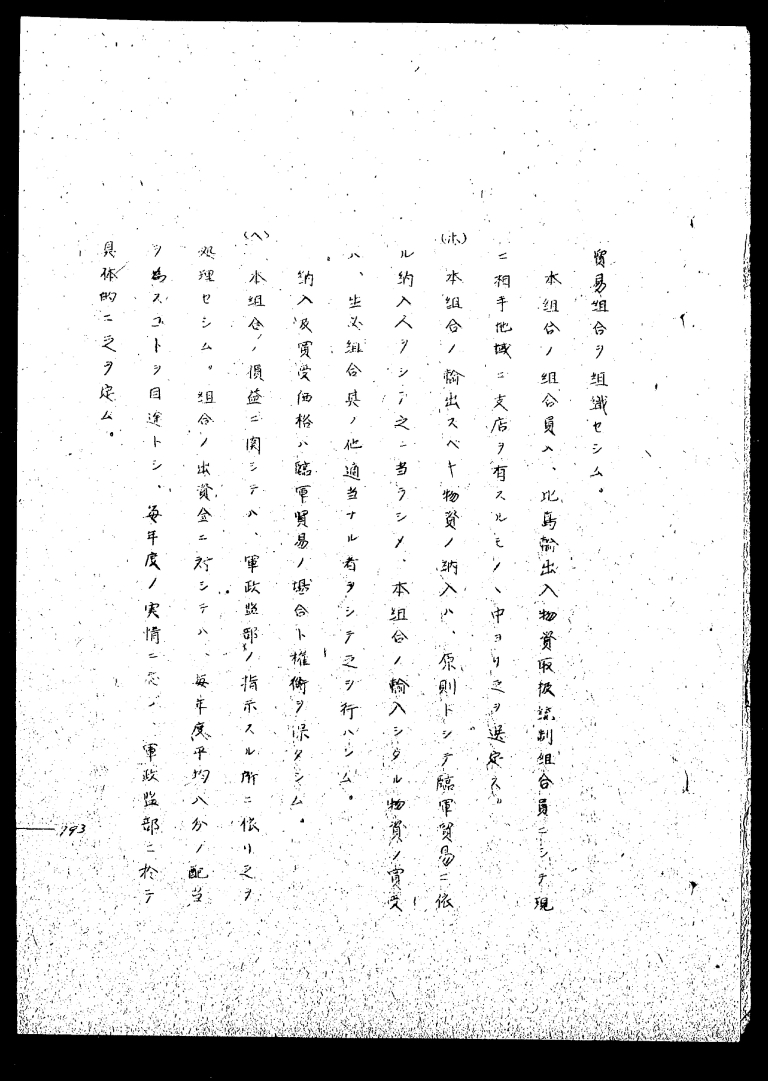 貿易組合ヲ組織セシム。
本組合ノ組合員ハ、比島輸出入物資取扱統制組合員ニシテ現
ニ相手地域ニ支店ヲ有スルモノヽ中ヨリ之ヲ選定ス。
(ホ) 本組合ノ輸出スベキ物資ノ納入ハ、原則トシテ臨軍貿易ニ依
ル納入人ヲシテ之ニ当ラシメ、本組合ノ輸入シタル物資ノ買受
ハ、生必組合其ノ他適当ナル者ヲシテ之ヲ行ハシム。
納入及買受価格ハ臨軍貿易ノ場合ト権衡ヲ保タシム。
(ヘ) 本組合ノ損益ニ関シテハ、軍政監部ノ指示スル所ニ依リ之ヲ
処理セシム。組合ノ出資金ニ対シテハ、毎年度平均八分ノ配当
ヲ為スコトヲ目途トシ、毎年度ノ実情ニ応ジ、軍政監部ニ於テ
具体的ニ之ヲ定ム。
793